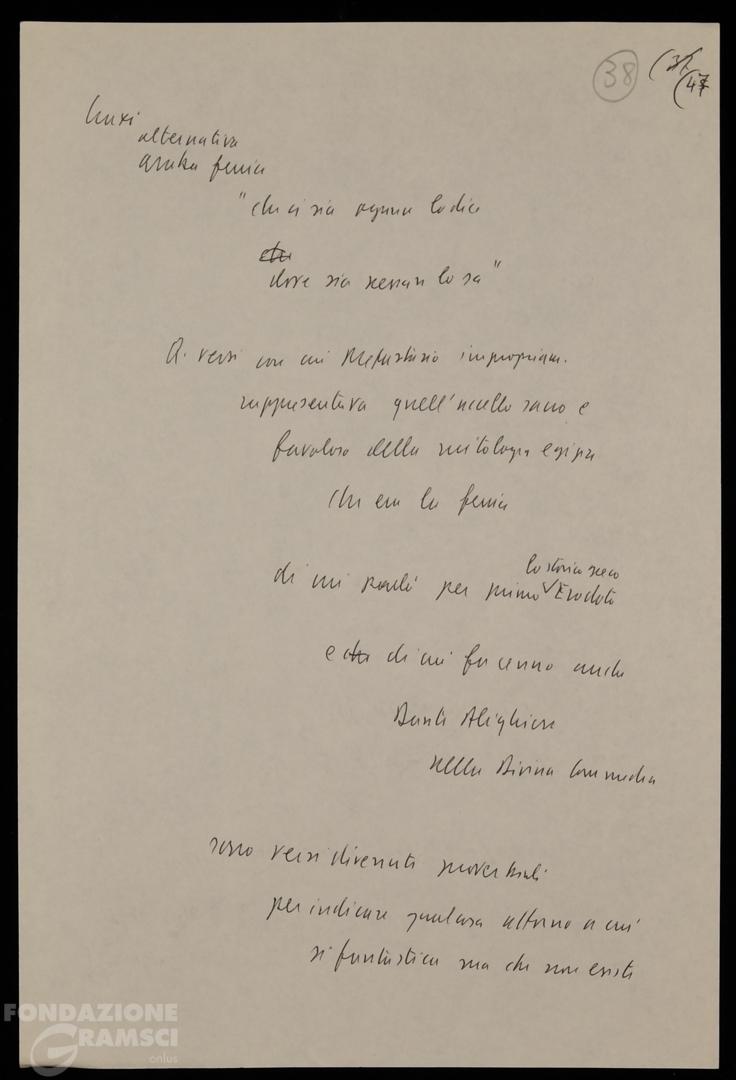 38 (37
(47
Craxi
alternativa
araba fenice
"che ci sia ognun lo dice
che
dove sia nessun lo sa"
I versi con cui Metastasio impropriam.
rappresentava quell'uccello sacro e
favoloso della mitologia egizia
che era la fenice
lo storico greco
di cui parlò per primo Erodoto
e che di cui fa cenno anche
Dante Alighieri
nella Divina Commedia
sono versi divenuti proverbiali
per indicare qualcosa attorno a cui
si fantastica ma che non esiste
FONDAZIONE
GRAMSCI
onlus